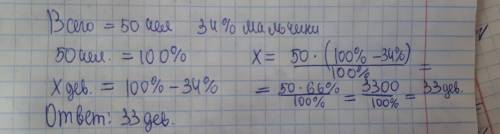 Всего = 50 чел 34% мальчики
50 чел. = 100% X = 50 · (100% - 34%) / 100% =
X дев. = 100% - 34% = 50 · 66% / 100% = 3300 / 100% = 33 дев.
Ответ: 33 дев.